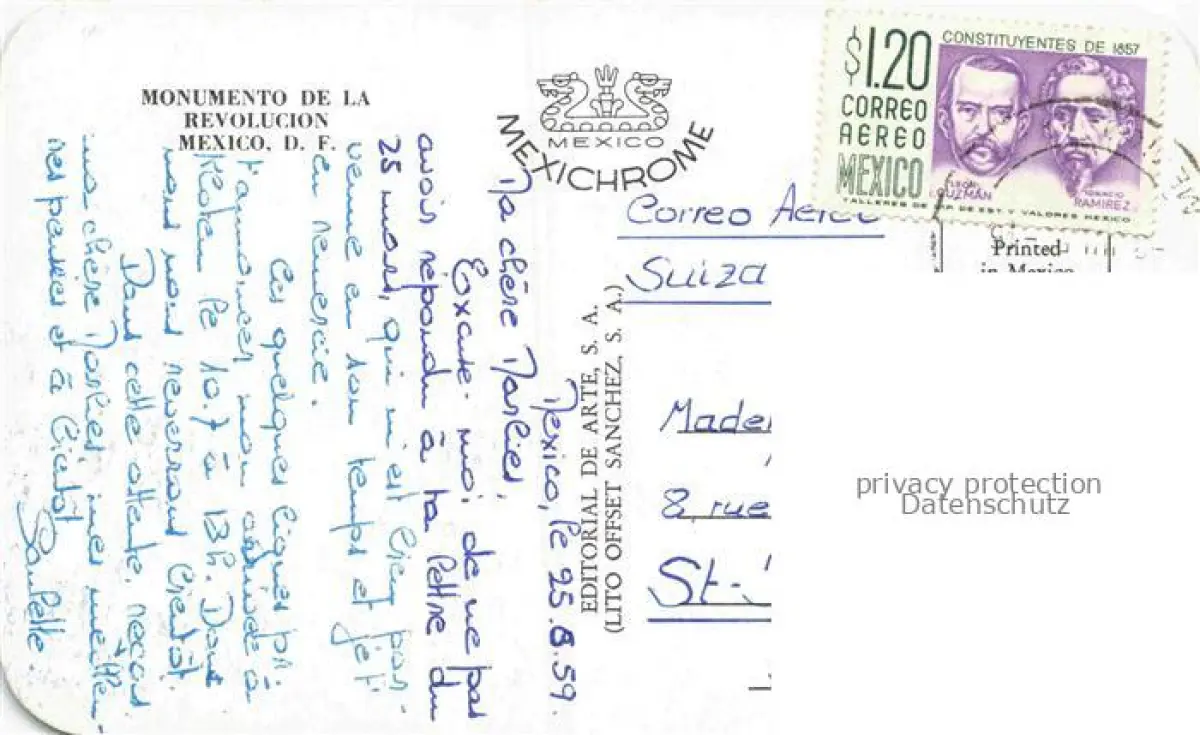 MONUMENTO DE LA
REVOLUCION
MEXICO, D. F.
MEXICO
MEXICHROME
$1.20
CORREO
AEREO
MEXICO
CONSTITUYENTES DE 1857
LEON
GUZMÁN
IGNACIO
RAMIREZ
TALLERES DE IMP. DE EST. Y VALORES MEXICO
Correo Aereo
Suiza
Printed
in Mexico
8, rue
St-
EDITORIAL DE ARTE, S. A.
(LITO OFFSET SANCHEZ, S. A.)
Mexico, le 25.5.59.
Ma chère Marlies,
Excuse-moi de ne pas
avoir répondu à ta lettre du
25 mars, qui m'est bien par-
venue en son temps et je t'
en remercie.
Ces quelques lignes pr.
t'annoncer mon arrivée à
Kloten le 10.7 à 13h. Donc
nous nous reverrons bientôt.
Dans cette attente, reçois
ma chère Marlies, mes meilleu-
res pensées et à bientôt
Paulette.
privacy protection
Datenschutz